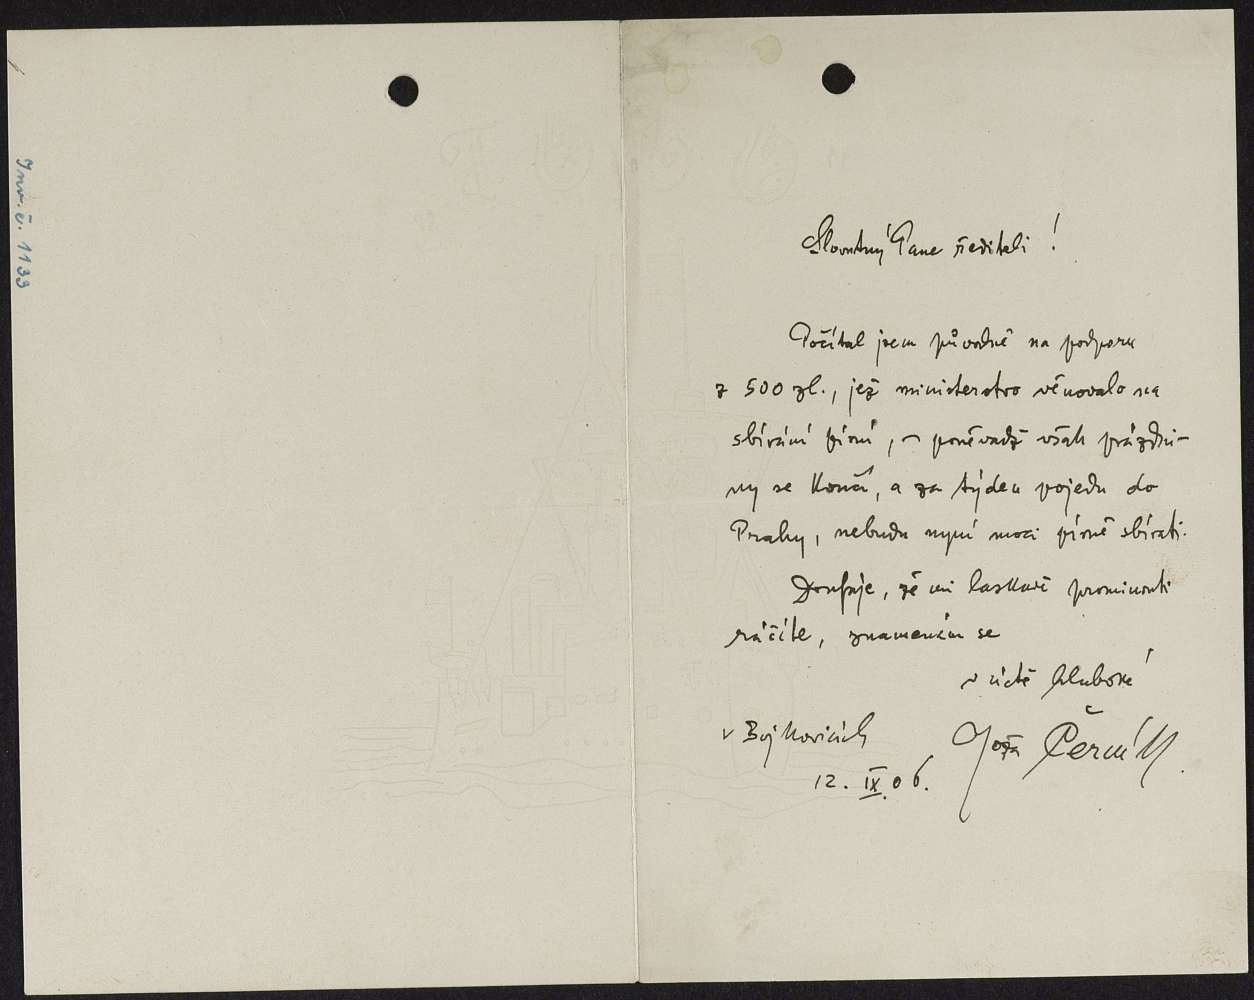 Inv. č. 1133
Slovutný Pane řediteli!
Počítal jsem původně na podporu
z 500 zl., jež ministerstvo věnovalo na
sbírání písní, – poněvadž však prázdni-
ny se končí, a za týden pojedu do
Prahy, nebudu nyní moci písně sbírati.
Doufaje, že mi laskavě prominouti
ráčíte, znamenám se
v úctě hluboké
Joža Černík.
v Bojkovicích
12. IX. 06.